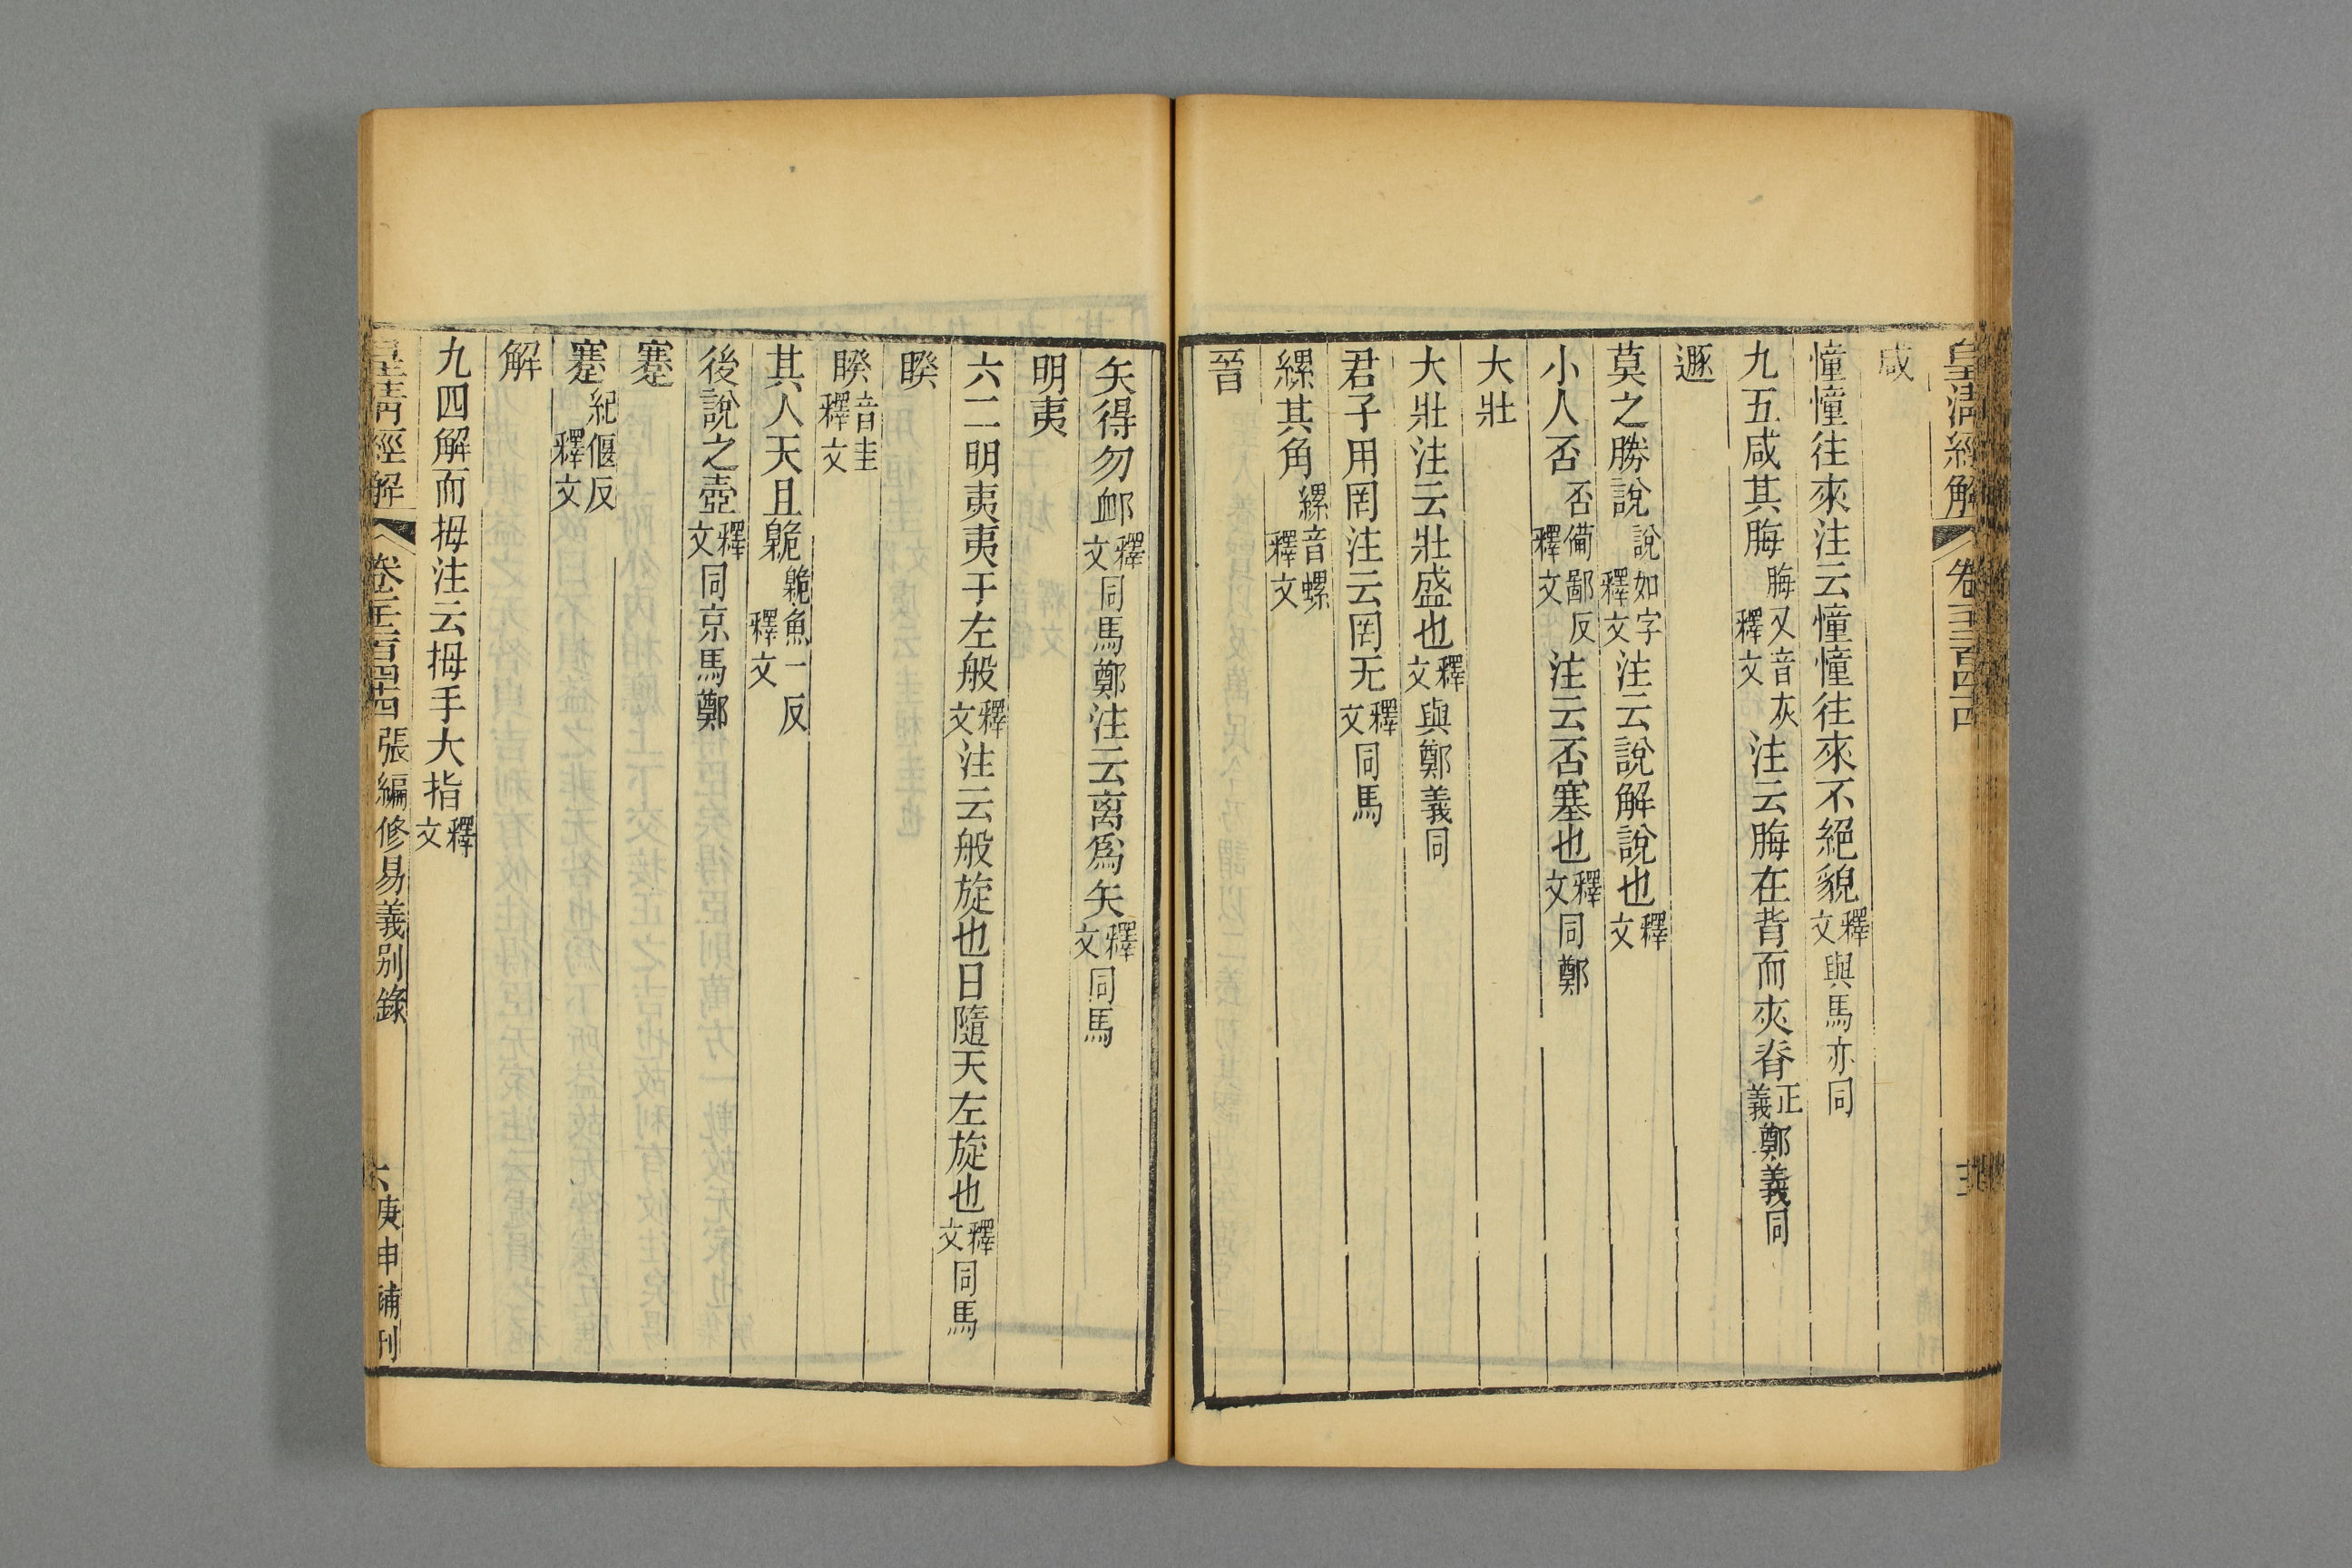 皇清經解 卷千二百四十四
咸
憧憧往來注云憧憧往來不絕貌釋文與馬亦同
九五咸其脢脢又音灰釋文注云脢在背而夾脊正義鄭義同
遯
莫之勝說說如字釋文注云說解說也釋文
小人否否備鄙反釋文注云否塞也釋文同鄭
大壯
大壯注云壯盛也釋文與鄭義同
君子用罔注云罔无釋文同馬
縲其角縲音螺釋文
晉
矢得勿䘏釋文同馬鄭注云离爲矢釋文同馬
明夷
六二明夷夷于左般釋文注云般旋也日隨天左旋也釋文同馬
睽
睽音圭釋文
其人天且臲臲魚一反釋文
後說之壺釋文同京馬鄭
蹇
蹇紀偃反釋文
解
九四解而拇注云拇手大指釋文
皇清經解 卷千二百四十四 張編修易義別錄 六 庚申補刊